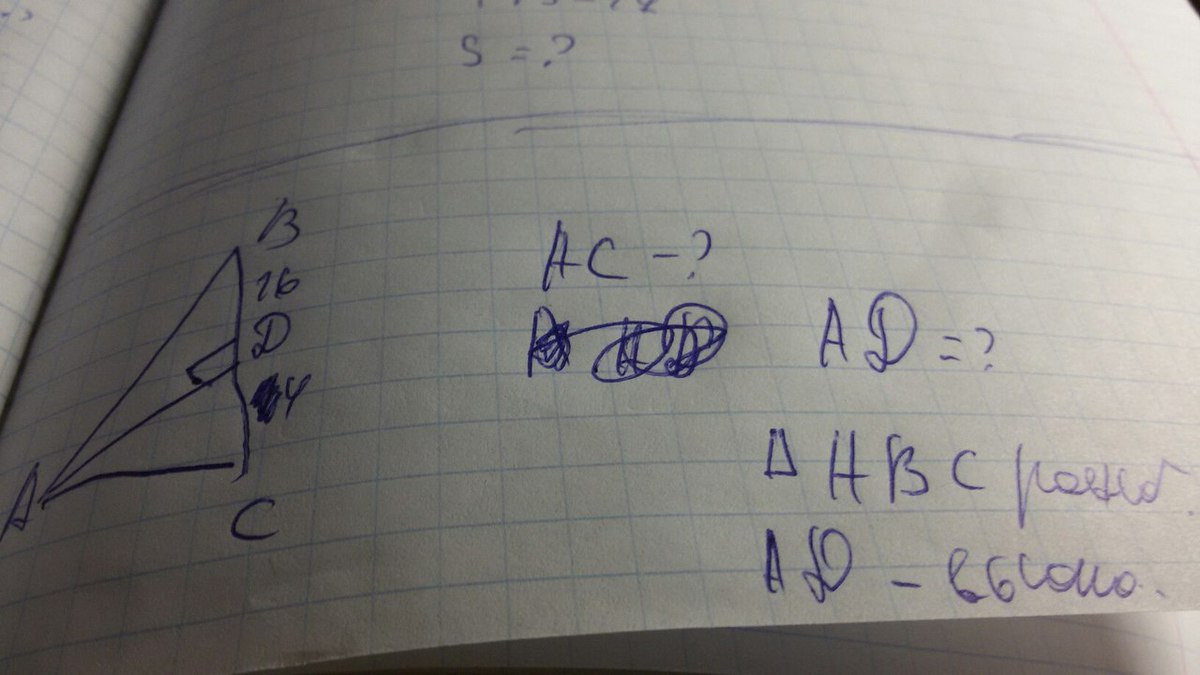 S = ?
B
16
D
4
A
C
AC - ?
AD = ?
Δ ABC равноб.
AD - высота.